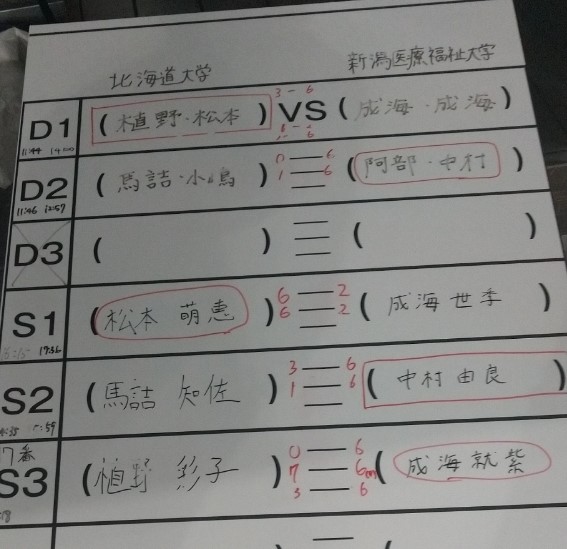 北海道大学 新潟医療福祉大学
D1 (植野・松本) VS (成海・成海)
3-6
11:44 14:00
D2 (馬詰・小嶋) (阿部・中村)
0 — 6
1 — 6
11:46 12:57
D3 ( ) ( )
S1 (松本 萌恵) (成海 世季)
6 — 2
6 — 2
S2 (馬詰 知佐) (中村 由良)
3 — 6
1 — 6
7番
S3 (植野 彩子) (成海 就紫)
0 — 6
7 — 6
3 — 6